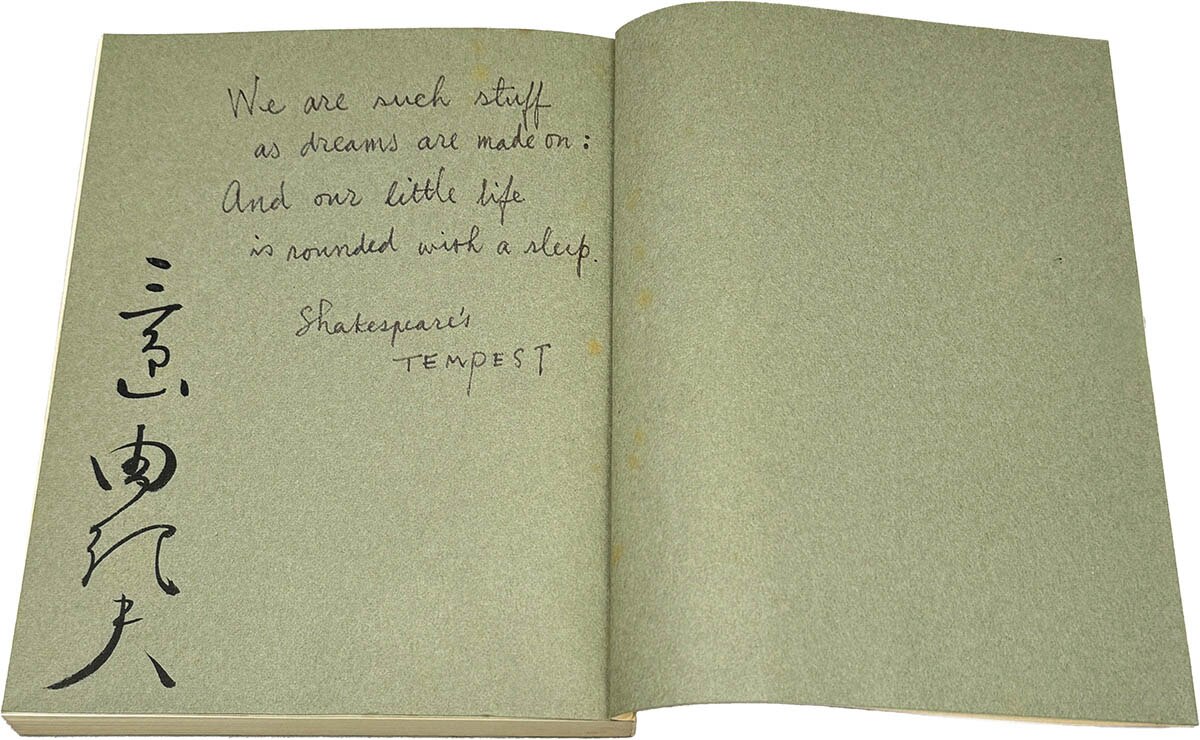 We are such stuff
as dreams are made on :
And our little life
is rounded with a sleep.
Shakespeare's
TEMPEST
三島由紀夫